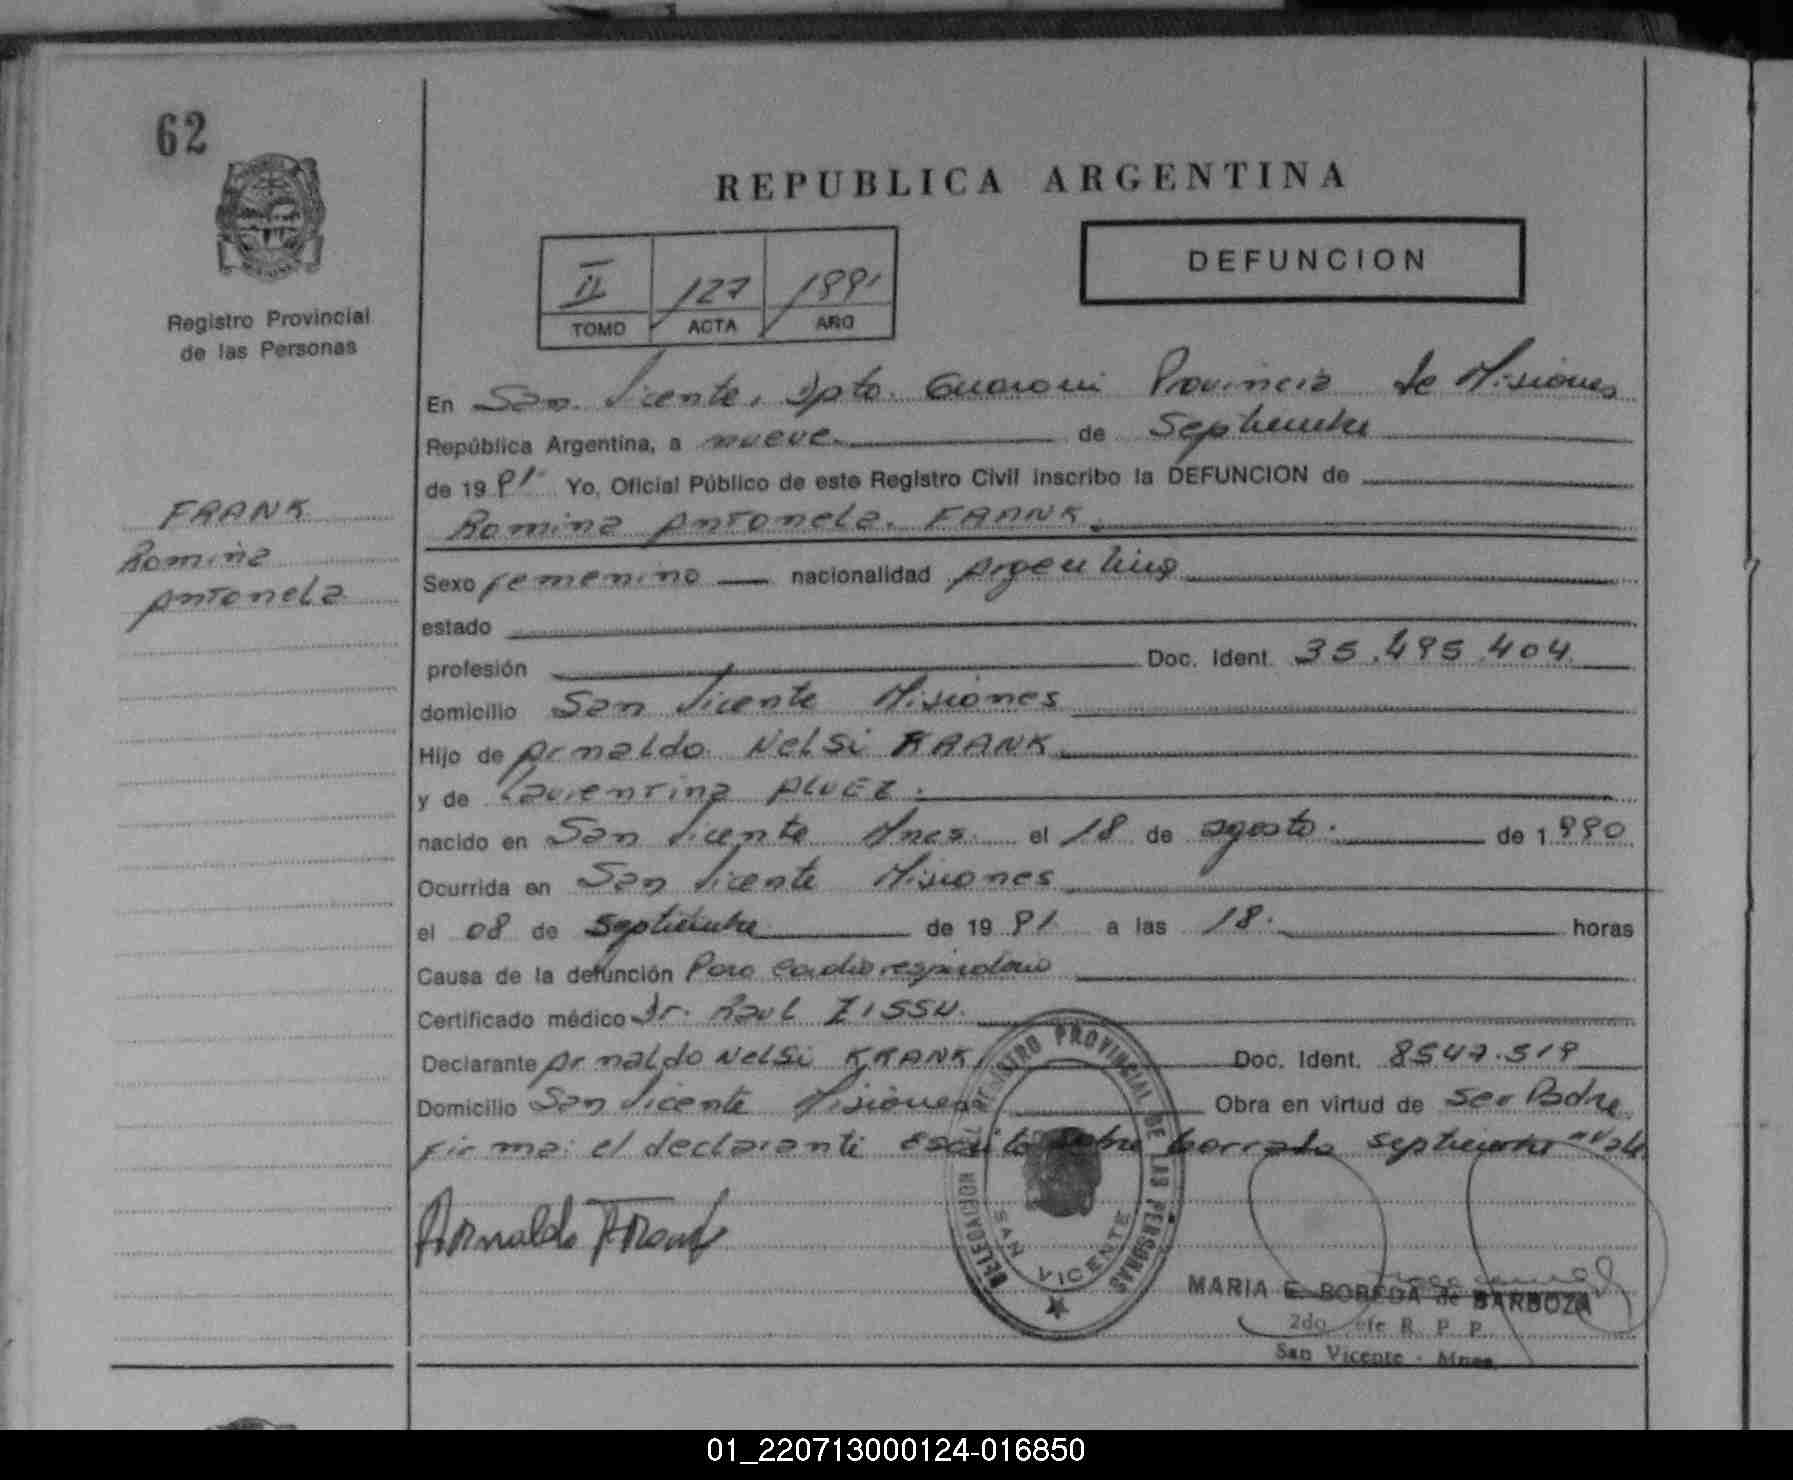 62
REPUBLICA ARGENTINA
DEFUNCION
II 127 1991
TOMO ACTA AÑO
Registro Provincial
de las Personas
FRANK
Romina
Antonela
En San Vicente, Dpto. Guarani Provincia de Misiones
República Argentina, a nueve de Septiembre
de 1991 Yo, Oficial Público de este Registro Civil inscribo la DEFUNCION de
Romina Antonela. FRANK.
Sexo femenino nacionalidad Argentina
estado
profesión Doc. Ident. 35.495.404
domicilio San Vicente Misiones
Hijo de Arnaldo Nelsi FRANK
y de Laurentina ALVEZ.
nacido en San Vicente Mnes. el 18 de agosto. de 1990
Ocurrida en San Vicente Misiones
el 08 de septiembre de 1991 a las 18. horas
Causa de la defunción Paro cardio respiratorio
Certificado médico Dr. Raul ZISSU.
Declarante Arnaldo Nelsi FRANK Doc. Ident. 8547.519
Domicilio San Vicente Misiones Obra en virtud de ser Padre.
Firma: el declarante Escrito sobre borrado septiembre vale
Arnaldo Frank
DELEGACION REGISTRO PROVINCIAL DE LAS PERSONAS
SAN VICENTE
MARIA E. BOREDA de BARBOZA
2do Jefe R. P. P.
San Vicente - Mnes.
01_220713000124-016850